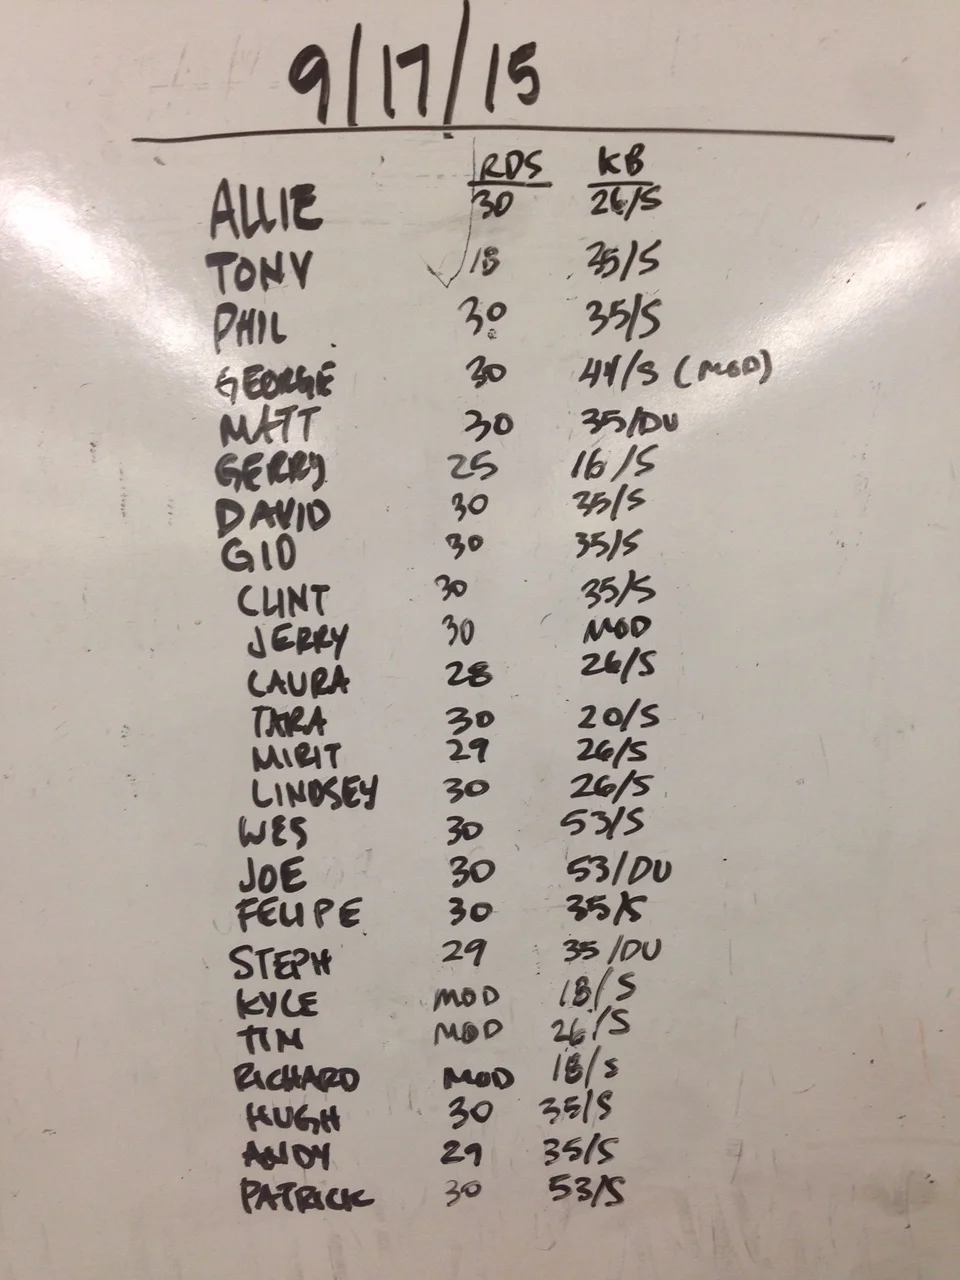 9/17/15
RDS KB
ALLIE 30 26/S
TONY 18 35/S
PHIL 30 35/S
GEORGE 30 44/S (MOD)
MATT 30 35/DU
GERRY 25 16/S
DAVID 30 35/S
GID 30 35/S
CLINT 30 35/S
JERRY 30 MOD
LAURA 28 26/S
TARA 30 20/S
MIRIT 29 26/S
LINDSEY 30 26/S
WES 30 53/S
JOE 30 53/DU
FELIPE 30 35/S
STEPH 29 35/DU
KYLE MOD 18/S
TIM MOD 26/S
RICHARD MOD 18/S
HUGH 30 35/S
ANDY 29 35/S
PATRICK 30 53/S